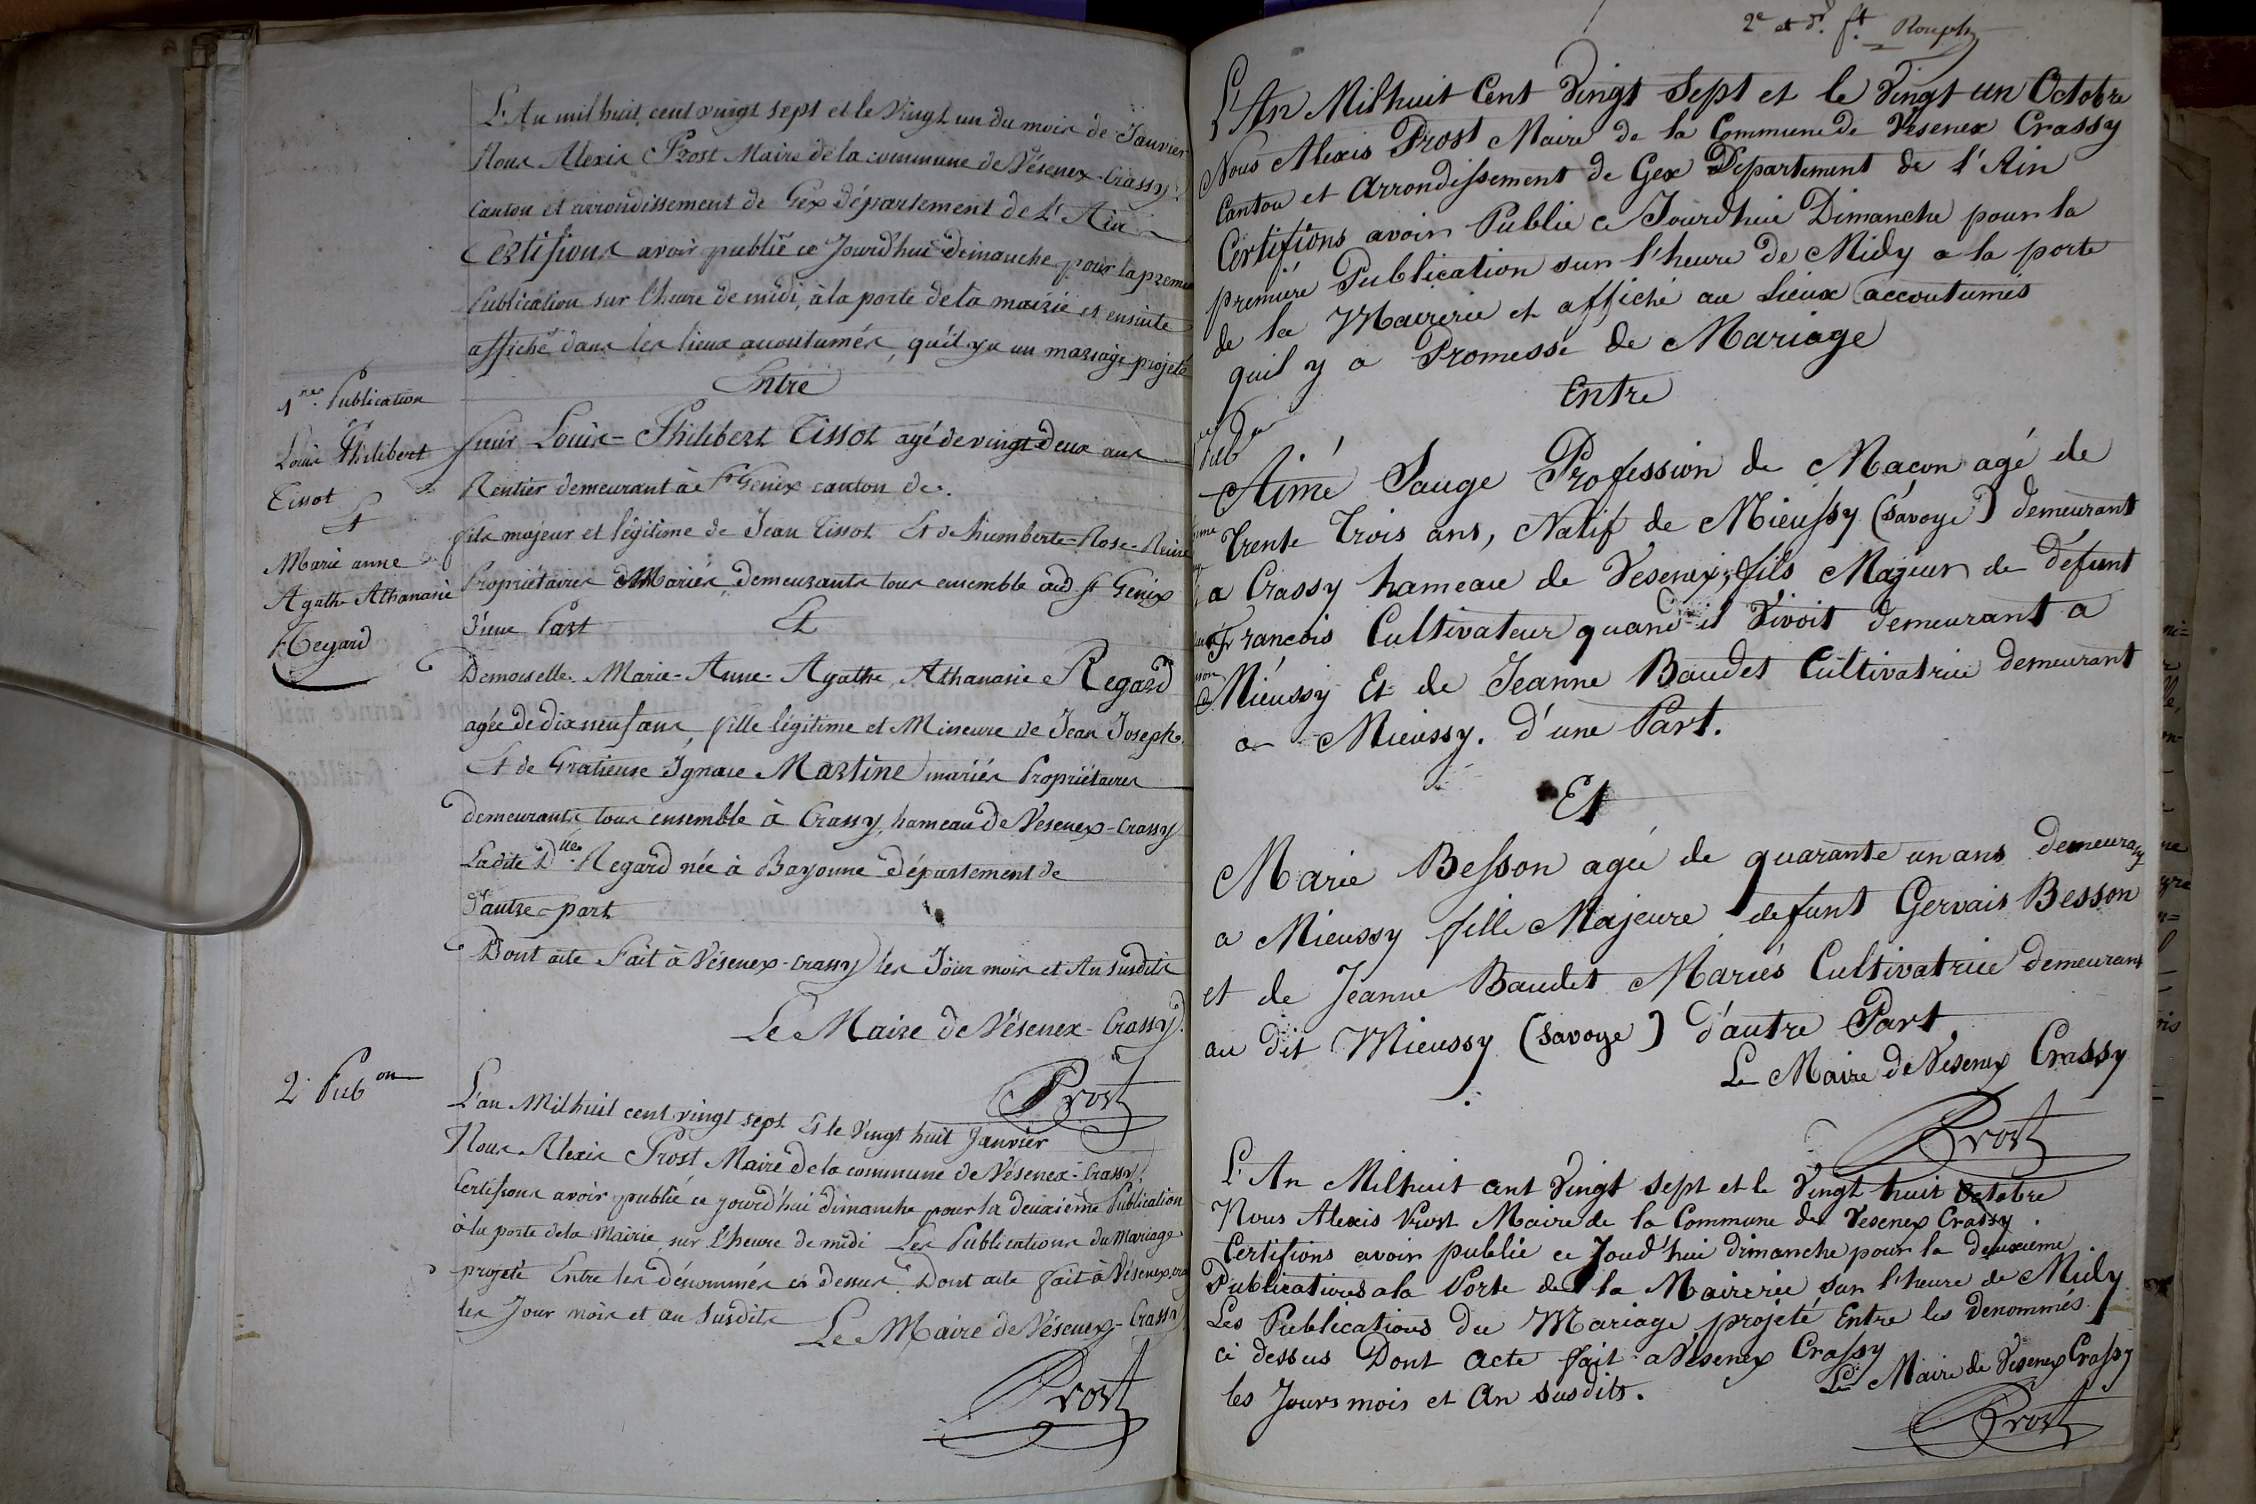 L'An mil huit cent vingt sept et le Vingt un du mois de Janvier
Nous Alexis Prost Maire de la commune de Vésenex-Crassy
canton et arrondissement de Gex département de L'Ain
Certifions avoir publié ce Jourd'hui dimanche pour la premie
Publication sur l'heure de midi, à la porte de la mairie et ensuite
affiché dans les lieux accoutumés, qu'il y a un mariage projeté
Entre
1re Publication
Louis Philibert
Tissot
Et
Marie anne
Agathe Athanasie
Regard
sieur Louis-Philibert Tissot agé de vingt deux ans
Rentier demeurant à St Genix canton de.
fils majeur et légitime de Jean Tissot Et de humberte-Rose-Reine
Propriétaires Mariés, demeurants tous ensemble aud St Genix
d'une Part Et
Demoiselle Marie-Anne-Agathe Athanasie Regard
agée de dix neuf ans, fille légitime et Mineure de Jean Joseph
Et de Gratieuse Ignace Martine mariés Propriétaires
demeurants tous ensemble à Crassy, hameau de Vesenex-Crassy
Ladite Dlle Regard née à Bayonne département de
d'autre-part
Dont acte Fait à Vésenex-Crassy les Jour mois et An susdits
Le Maire de Vésenex-Crassy
Prost
2 Pub on
L'an Mil huit cent vingt sept Et le Vingt huit Janvier
Nous Alexis Prost Maire de la commune de Vésenex-Crassy
Certifions avoir publié ce jourd'hui dimanche pour la deuxième Publication
à la porte de la Mairie, sur l'heure de midi Les Publications du Mariage
projeté Entre les dénommés ci dessus. Dont acte fait à Vésenex, cra
les Jour mois et an susdits
Le Maire de Vésenex-Crassy
Prost
2e et
L'An Milhuit Cent Vingt Sept et le Vingt un Octobre
Nous Alexis Prost Maire de la Commune de Vesenex Crassy
Canton et Arrondissement de Gex Département de L'Ain
Certifions avoir Publie ce Jourdhui Dimanche pour la
premiere Publication sur l'heure de Midy a la porte
de la Mairerie et affiché au Lieux accoutumés
quil y a Promesse de Mariage
Entre
Pub
Aimé Sauge Profession de Macon agé de
Trente Trois ans, Natif de Mieussy (Savoye) demeurant
a Crassy hameau de Vesenex, fils Majeur de défunt
Francois Cultivateur quand il Vivoit demeurant a
Mieussy Et de Jeanne Baudet Cultivatrice demeurant
a Mieussy. d'une Part.
Et
Marie Besson agée de quarante un ans demeurant
a Mieussy fille Majeure defunt Gervais Besson
et de Jeanne Baudet Mariés Cultivatrice demeurant
au dit Mieussy (Savoye) d'autre Part,
Le Maire de Vesenex Crassy
Prost
L'An Milhuit cent Vingt Sept et le Vingt huit Octobre
Nous Alexis Prost Maire de la Commune de Vesenex Crassy.
Certifions avoir publié ce Joud'hui dimanche pour la deuxieme
Publications a la Porte de la Mairerie sur l'heure de Midy
Les Publications du Mariage projeté Entre les denommés
ci dessus Dont Acte fait a Vésenex Crassy
les Jours mois et An susdits.
Le Maire de Vésenex Crassy
Prost